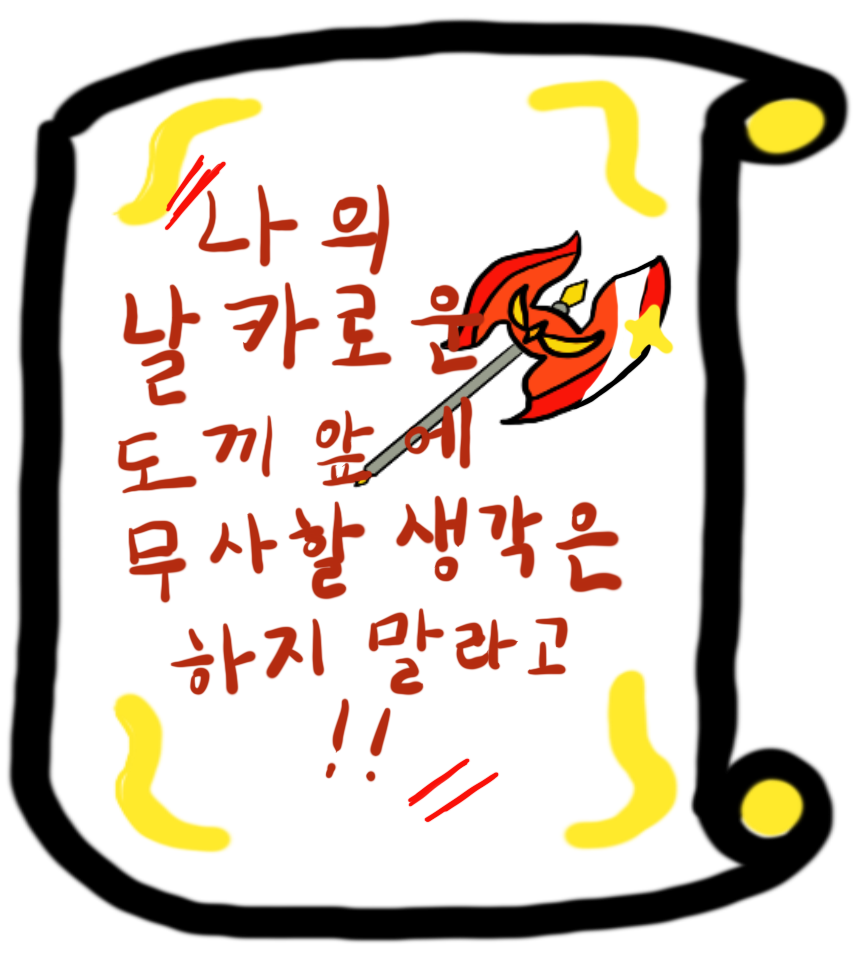 나의
날카로운
도끼 앞에
무사할 생각은
하지 말라고
!!